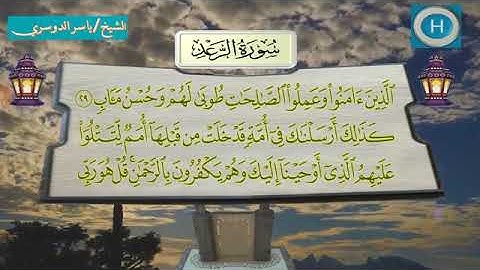 الشيخ/ياسر الدوسري
H
سُورَةُ الرَّعْدِ
الَّذِينَ ءَامَنُوا۟ وَعَمِلُوا۟ الصَّٰلِحَٰتِ طُوبَىٰ لَهُمْ وَحُسْنُ مَـَٔابٍ ٢٩
كَذَٰلِكَ أَرْسَلْنَٰكَ فِىٓ أُمَّةٍ قَدْ خَلَتْ مِن قَبْلِهَآ أُمَمٌ لِّتَتْلُوَا۟
عَلَيْهِمُ الَّذِىٓ أَوْحَيْنَآ إِلَيْكَ وَهُمْ يَكْفُرُونَ بِالرَّحْمَٰنِ ۚ قُلْ هُوَ رَبِّى